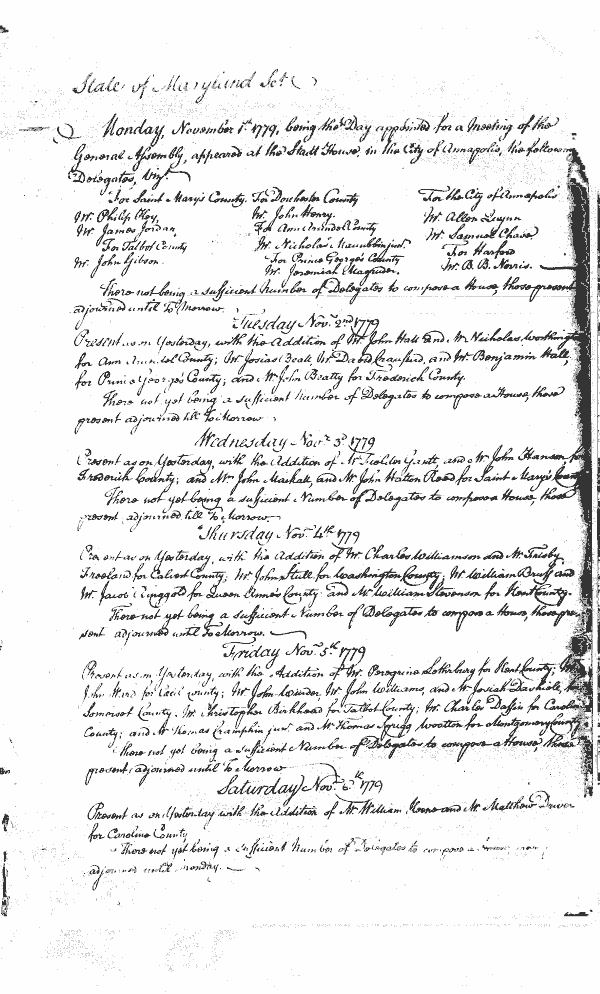 State of Maryland Sct.
Monday, November 1st 1779, being the Day appointed for a Meeting of the
General Assembly, appeared at the Stadt House, in the City of Annapolis, the following
Delegates, Vizt.
For Saint Mary's County. For Dorchester County For the City of Annapolis
Mr. Philip Key, Mr. John Henry. Mr. Allen Quynn
Mr. James Jordan, For Ann Arundel County Mr. Samuel Chase
For Talbot County Mr. Nicholas junr. For Harford
Mr. John Gibson. For Prince George's County Mr. B. B. Norris.
Mr. Jeremiah Magruder.
There not being a sufficient Number of Delegates to compose a House, those present
adjourned until To Morrow.
Tuesday Novr. 2nd 1779
Present as on Yesterday, with the Addition of Mr. John Hall and Mr. Nicholas Worthington
for Ann Arundel County; Mr. Josias Beall, Mr. David Craufurd, and Mr. Benjamin Hall,
for Prince George's County; and Mr. John Beatty for Frederick County.
There not yet being a sufficient Number of Delegates to compose a House, those
present adjourned till To Morrow
Wednesday Novr. 3d 1779
Present as on Yesterday, with the Addition of Mr. Fielder Gantt, and Mr. John Hanson for
Frederick County; and Mr. John Mackall, and Mr. John Hatton Read for Saint Mary's County
There not yet being a sufficient Number of Delegates to compose a House, those
present adjourned till To Morrow.
Thursday Novr. 4th 1779
Present as on Yesterday, with the Addition of Mr. Charles Williamson and Mr. Frisby
Freeland for Calvert County; Mr. John Stull for Washington County; Mr. William Bruff and
Mr. Jacob Ringgold for Queen Anne's County and Mr. William Stevenson for Kent County.
There not yet being a sufficient Number of Delegates to compose a House, those pre-
sent adjourned until To Morrow.
Friday Novr. 5th 1779
Present as on Yesterday, with the Addition of Mr. Peregrine Letherbury for Kent County; Mr.
John Ward for Cecil County; Mr. John Winder, Mr. John Williams, and Mr. Josiah Dashiell, for
Somerset County. Mr. Christopher Birkhead for Talbot County; Mr. Charles for Caroline
County; and Mr. Thomas Cramphin junr. and Mr. Thomas Sprigg Wootton for Montgomery County
There not yet being a sufficient Number of Delegates to compose a House, those
present, adjourned until To Morrow
Saturday Novr. 6th 1779
Present as on Yesterday with the Addition of Mr. William Keene and Mr. Matthew Driver
for Caroline County
There not yet being a sufficient Number of Delegates to compose a House
adjourned until Monday.